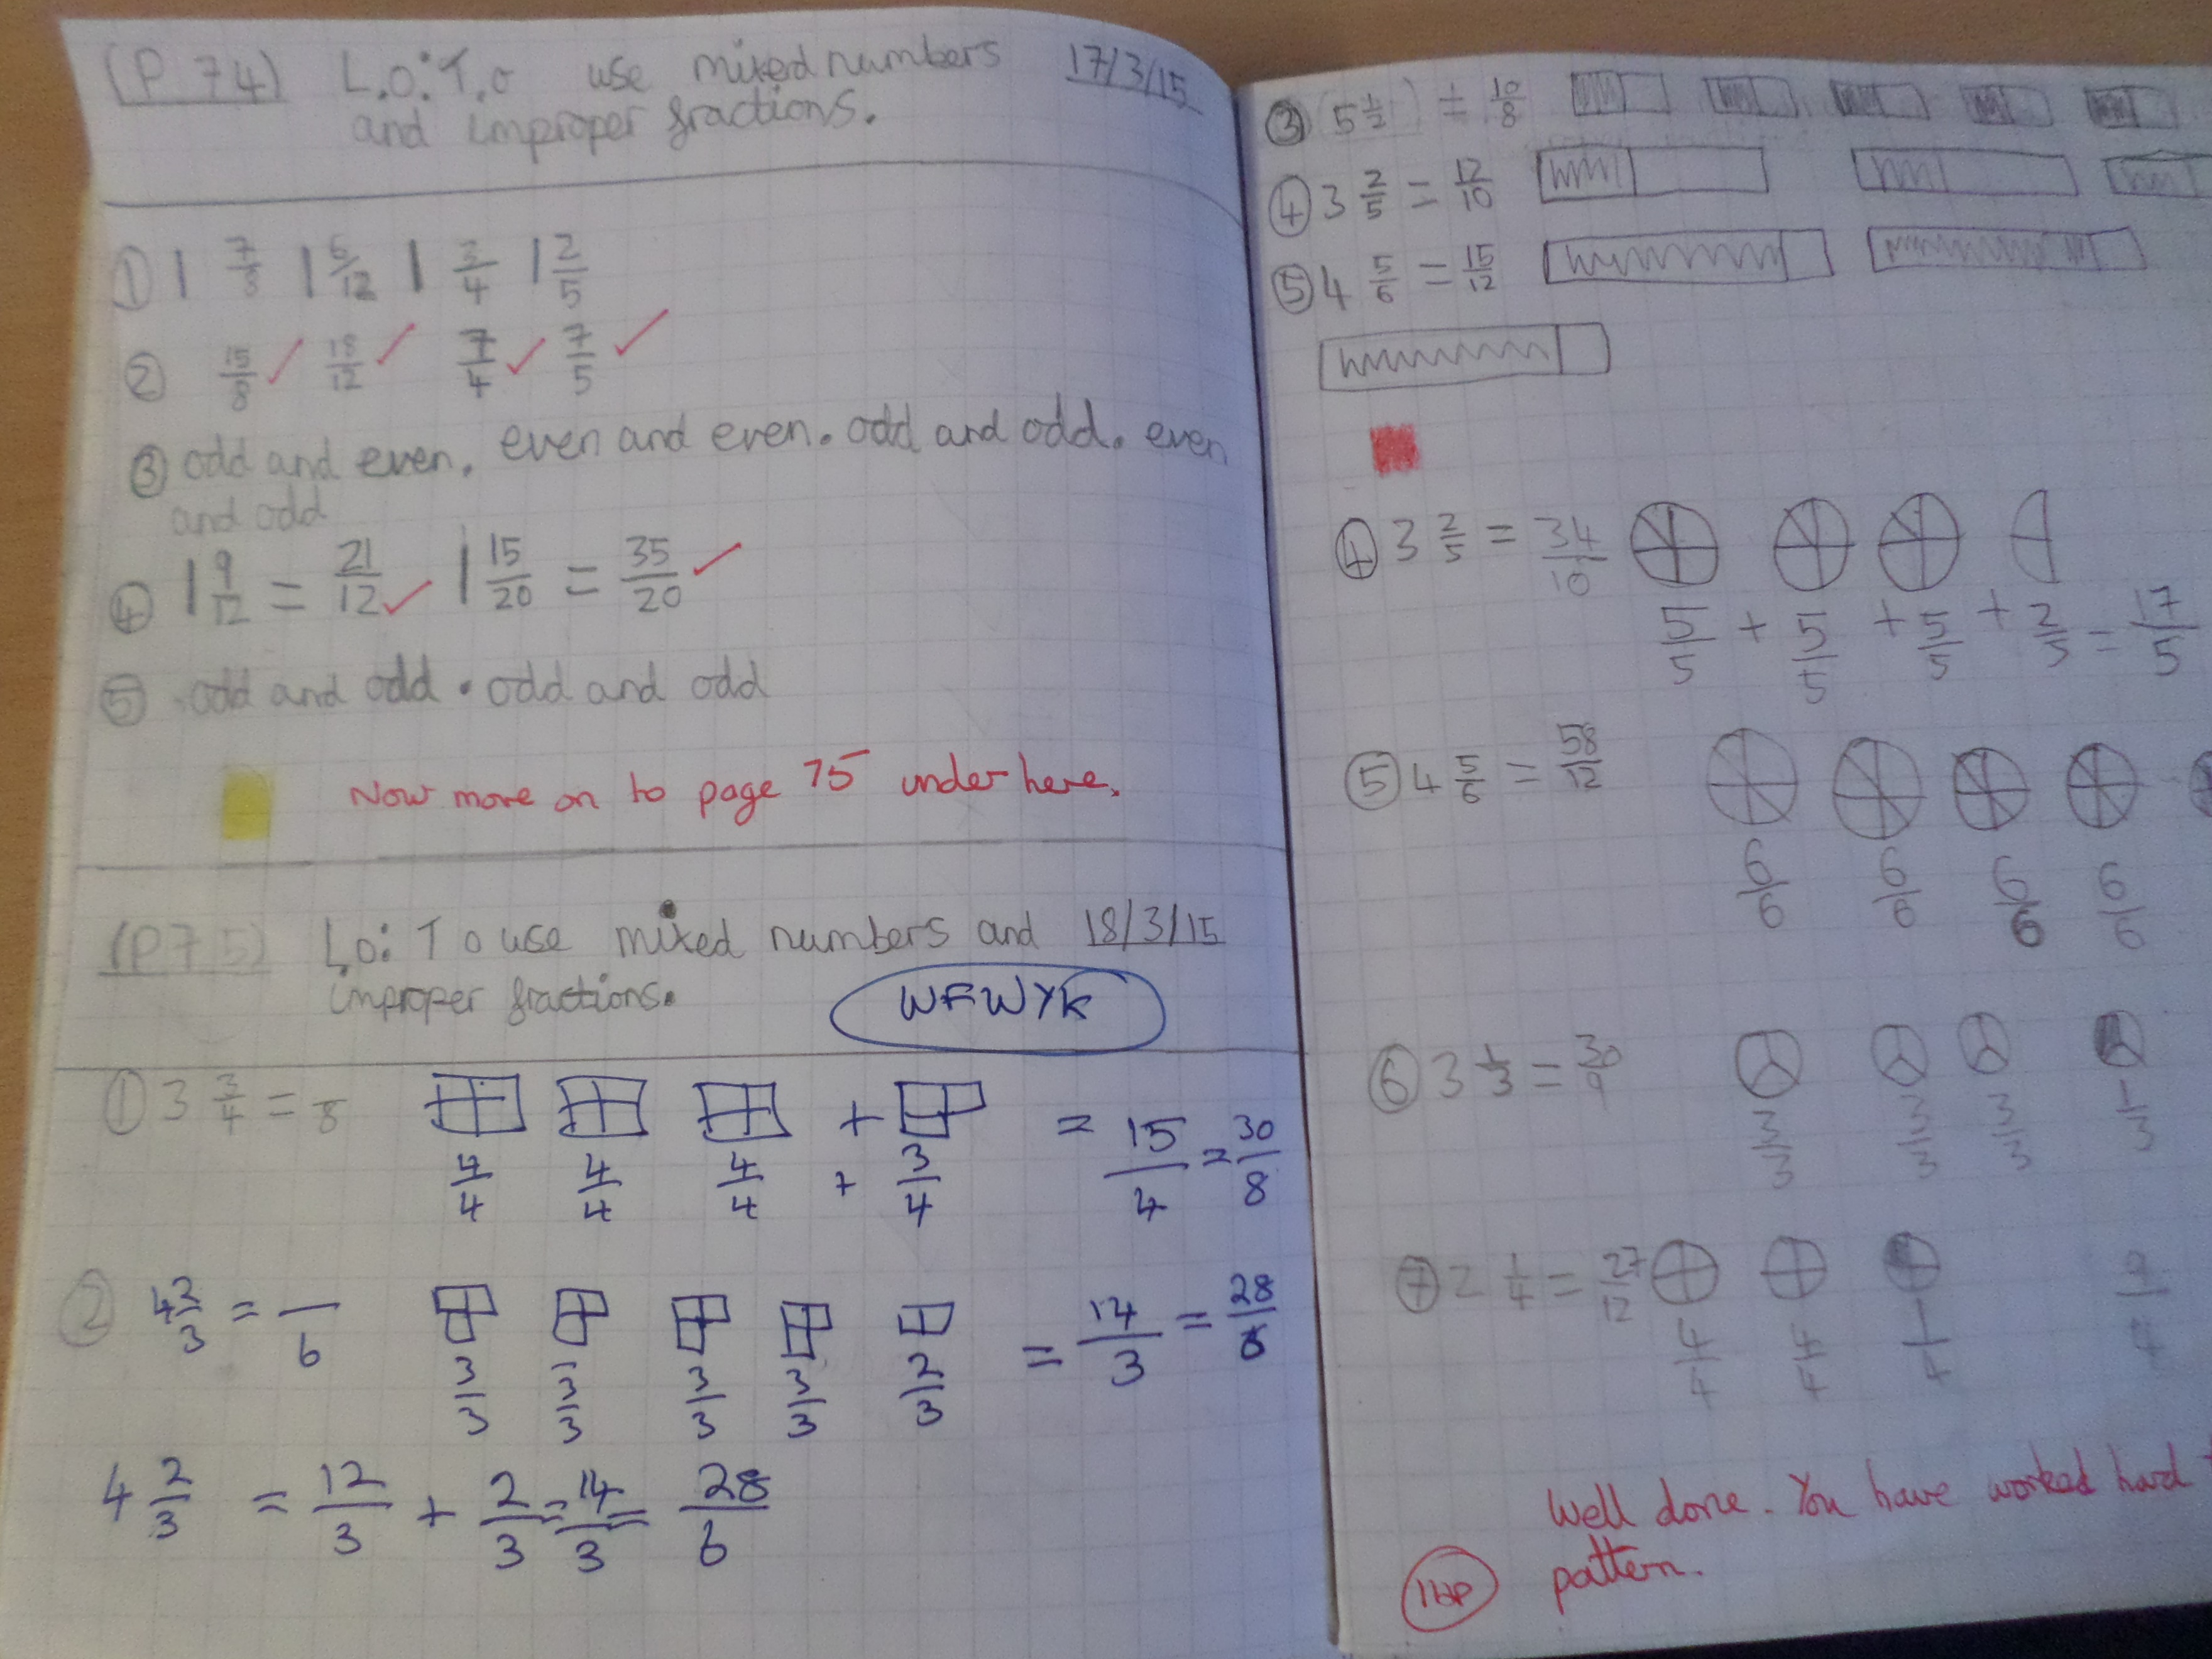 (P 74) L.O: T.o use mixed numbers 17/3/15
and improper fractions.
① 1 7/8 1 6/12 1 3/4 1 2/5
② 15/8 ✓ 18/12 ✓ 7/4 ✓ 7/5 ✓
③ odd and even. even and even. odd and odd. even
and odd
④ 1 9/12 = 21/12 ✓ 1 15/20 = 35/20 ✓
⑤ odd and odd. odd and odd
Now move on to page 75 under here.
(P 75) L.o: To use mixed numbers and 18/3/15
improper fractions.
WFWYK
① 3 3/4 = /8 + = 15/4 = 30/8
4/4 4/4 4/4 + 3/4
② 4 2/3 = /6 = 14/3 = 28/6
3/3 3/3 3/3 3/3 2/3
4 2/3 = 12/3 + 2/3 = 14/3 = 28/6
③ (5 1/2) = 10/8
④ 3 2/5 = 12/10
⑤ 4 5/6 = 15/12
④ 3 2/5 = 34/10
5/5 + 5/5 + 5/5 + 2/5 = 17/5
⑤ 4 5/6 = 58/12
6/6 6/6 6/6 6/6
⑥ 3 1/3 = 30/9
3/3 3/3 3/3 1/3
⑦ 2 1/4 = 27/12
4/4 4/4 1/4 9/4
Well done. You have worked hard
pattern.
1HP